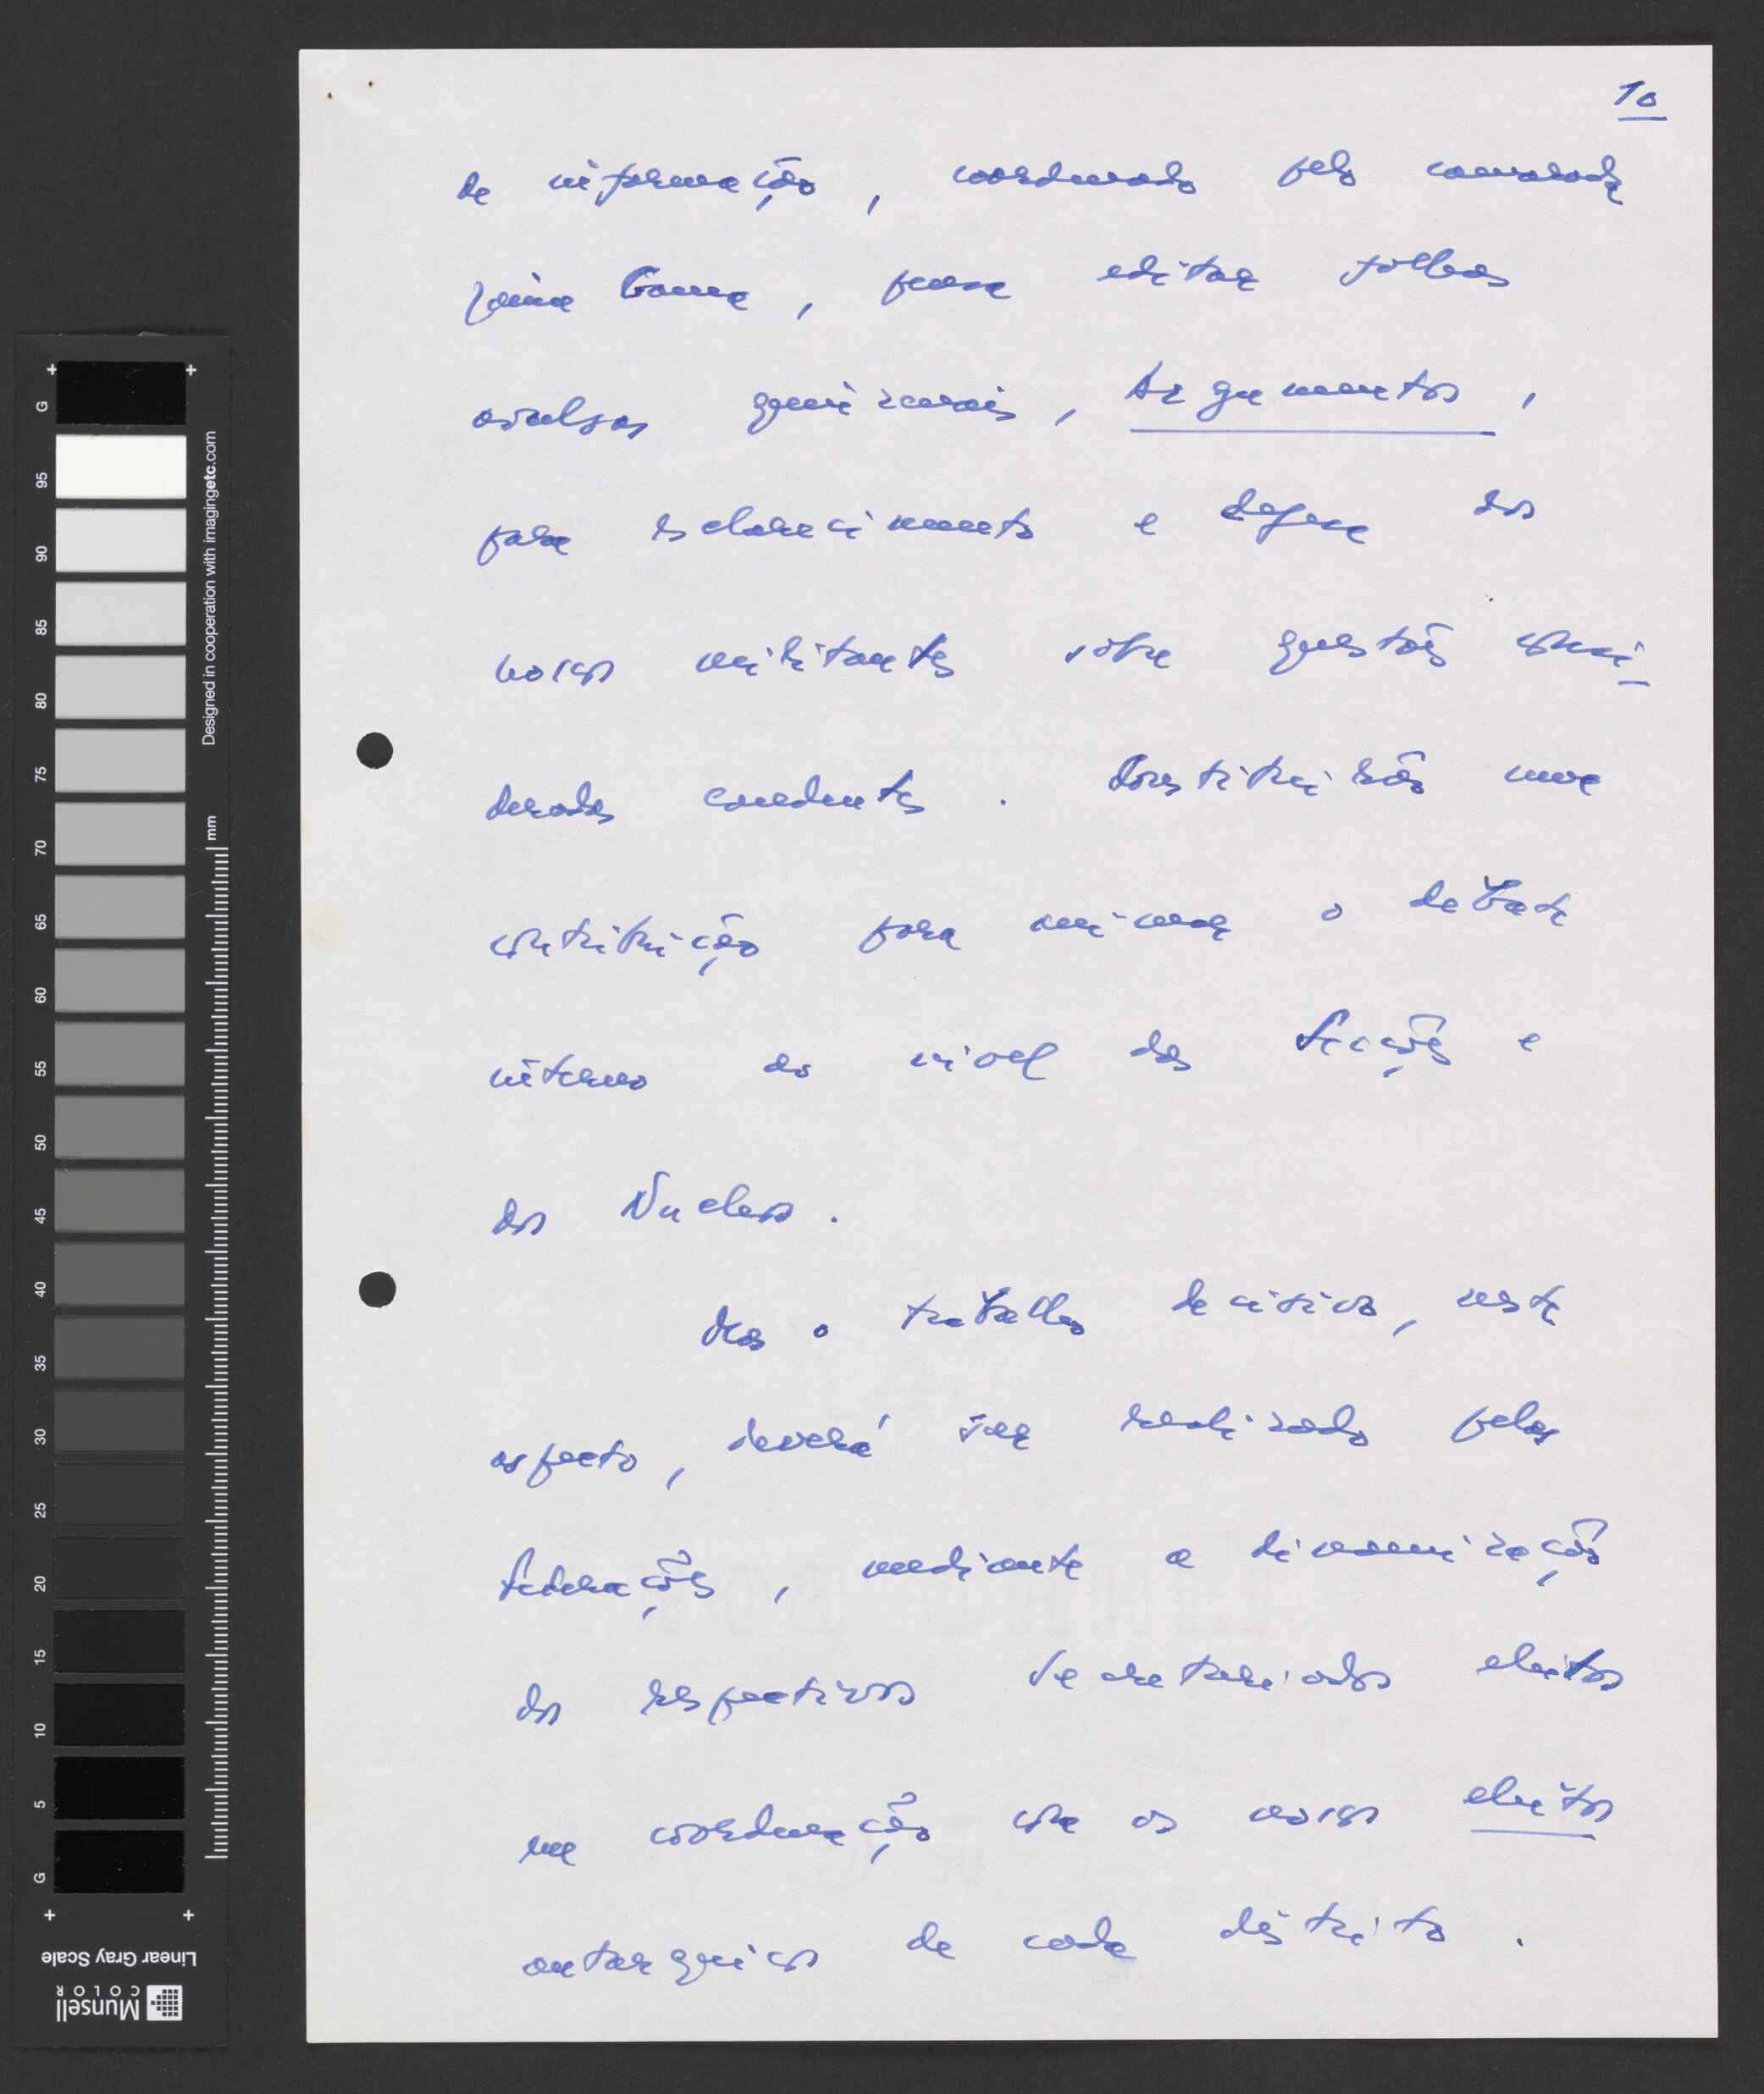 10
de informação, coordenado pelo camarada
Jaime Gama, para editar folhas
avulsas quinzenais, Argumentos,
para esclarecimento e defesa dos
nossos militantes sobre questões consi-
deradas candentes. Constituirão uma
contribuição para animar o debate
interno ao nível das Secções e
dos Nucleos.
Mas o trabalho decisivo, neste
aspecto, deverá ser realizado pelas
Federações, mediante a dinamização
dos respectivos Secretariados eleitos
na coordenação com os nossos eleitos
autarquicos de cada distrito.
Designed in cooperation with imagingetc.com
mm
G
95
90
85
80
75
70
65
60
55
50
45
40
35
30
25
20
15
10
5
G
Linear Gray Scale
Munsell
COLOR